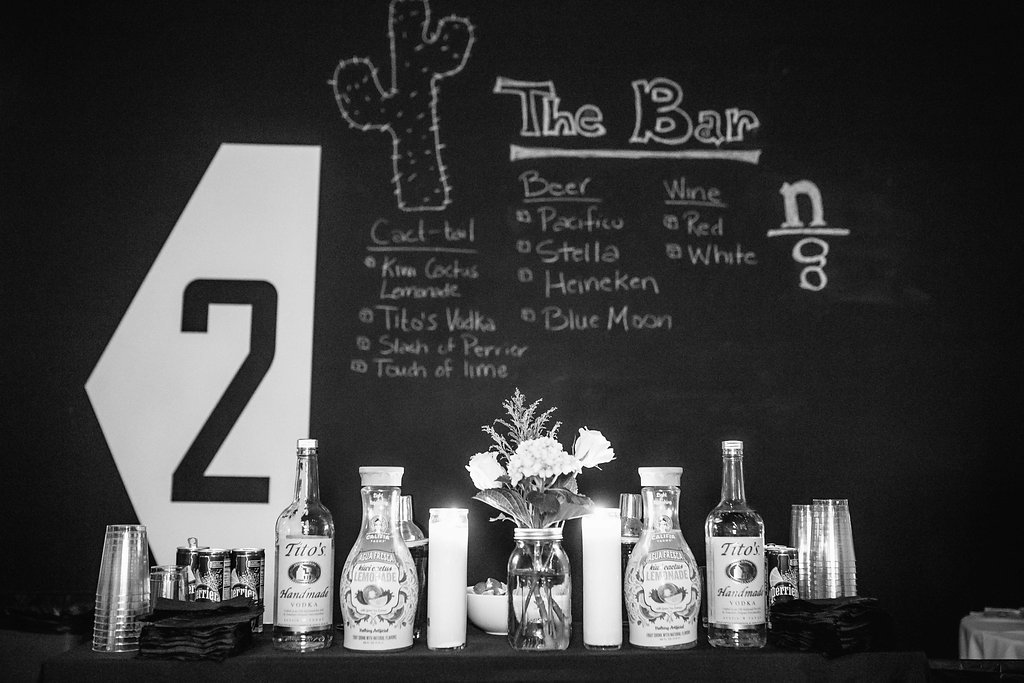 The Bar
Cact-tail
Kiwi Cactus
Lemonade
Tito's Vodka
Slash of Perrier
Touch of lime
Beer
Pacifico
Stella
Heineken
Blue Moon
Wine
Red
White
n
ga
2
Tito's
Handmade
VODKA
CALIFIA
FARMS
AGUA FRESCA
kiwi cactus
LEMONADE
Perrier
CALIFIA
FARMS
AGUA FRESCA
kiwi cactus
LEMONADE
Tito's
Handmade
VODKA
Perrier